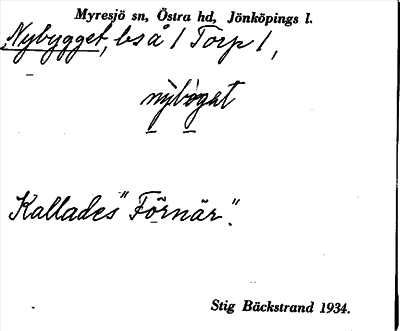 Myresjö sn, Östra hd, Jönköpings l.
Nybygget, bs å 1 Torp 1,
nỳbỳgat
Kallades "Förnär".
Stig Bäckstrand 1934.